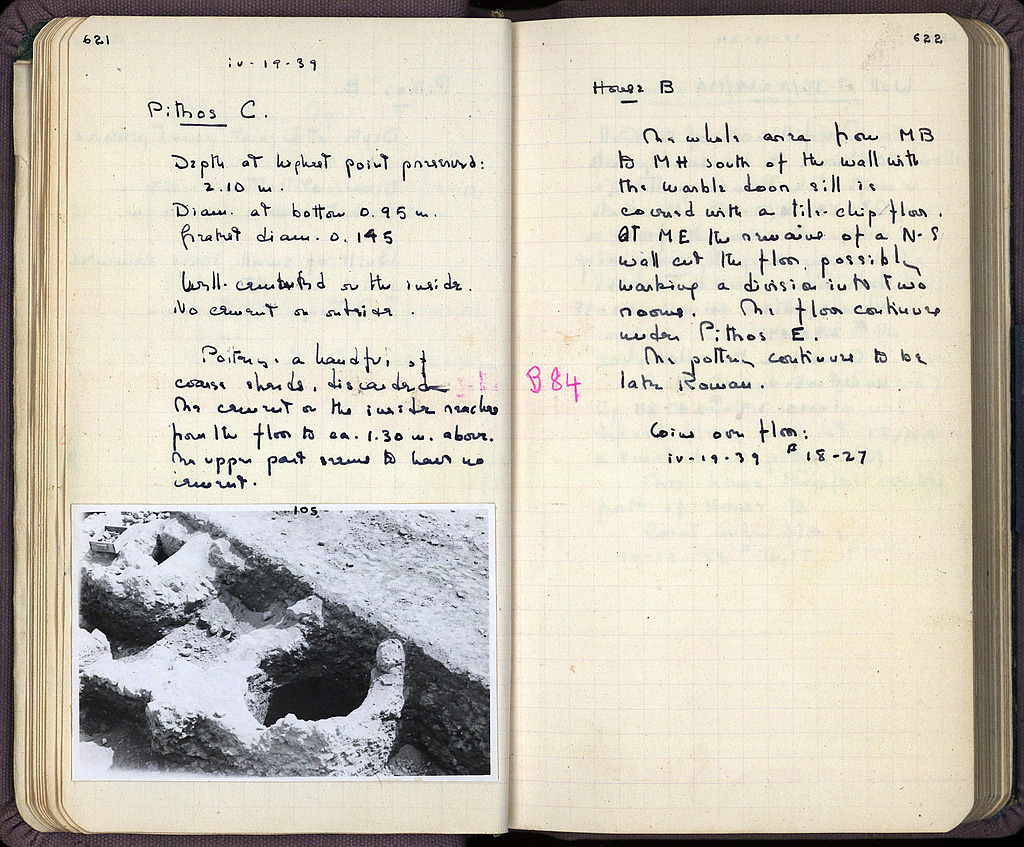 621
iv-19-39
Pithos C.
Depth at highest point preserved:
2.10 m.
Diam. at bottom 0.95 m.
Greatest diam. 0.145
Well-cemented on the inside.
No cement on outside.
Pottery, a handful of
coarse sherds, discarded
The cement on the inside reaches
from the floor to ca. 1.30 m. above.
The upper part seems to have no
cement.
105
B84
622
House B
The whole area from MB
to MH south of the wall with
the marble door sill is
covered with a tile-chip floor.
At ME the remains of a N-S
wall cut the floor, possibly
marking a division into two
rooms. The floor continues
under Pithos E.
The pottery continues to be
late Roman.
Coins over floor:
iv-19-39 # 18-27